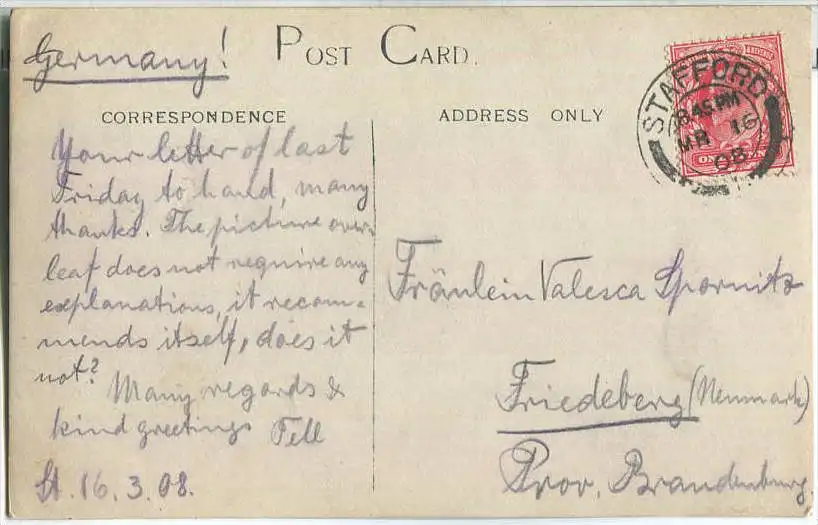 Germany!
POST CARD.
CORRESPONDENCE
ADDRESS ONLY
STAFFORD
8.45 PM
MR 16
08
Your letter of last
Friday to hand, many
thanks. The picture over-
leaf does not require any
explanations, it recom-
mends itself, does it
not?
Many regards &
kind greetings Tell
St. 16. 3. 08.
Fräulein Valesca Spornitz
Friedeberg (Neumark)
Prov. Brandenburg